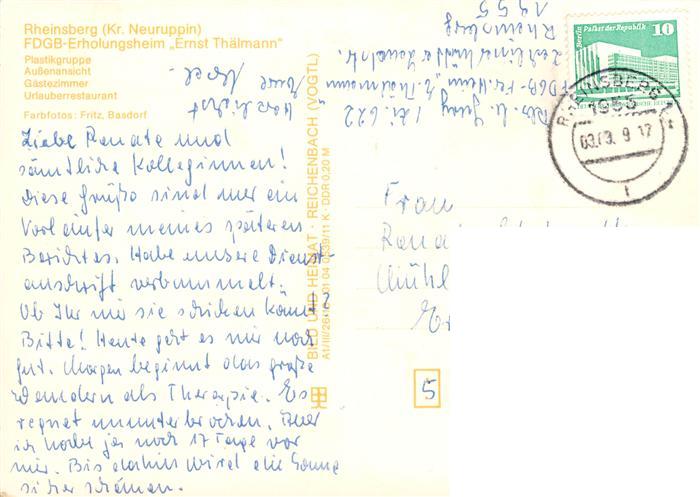 Rheinsberg (Kr. Neuruppin)
FDGB-Erholungsheim „Ernst Thälmann“
Plastikgruppe
Außenansicht
Gästezimmer
Urlauberrestaurant
Farbfotos: Fritz, Basdorf
Liebe Renate und
sämtliche Kolleginnen!
Diese Grüße sind nur ein
Vorläufer meines späteren
Berichtes. Habe unsere Dienst-
anschrift verbummelt.
Ob Ihr mir sie schicken könnt?
Bitte! Heute geht es mir noch
gut. Morgen beginnt das große
Wandern als Therapie. Es
regnet ununterbrochen. Aber
ich habe ja noch 17 Tage vor
mir. Bis dahin wird die Sonne
sicher scheinen.
Herzlichst
Eure
BILD UND HEIMAT · REICHENBACH (VOGTL)
A1/III/26/13 01 04 0639/11 K · DDR 0,20 M
Zi. 622
FDGB-Er. Heim „E. Thälmann“
Rheinsberg
1955
Berlin, Palast der Republik
10
DDR
RHEINSBERG
1955
9 17
1
Frau
Rena
Mühl
5